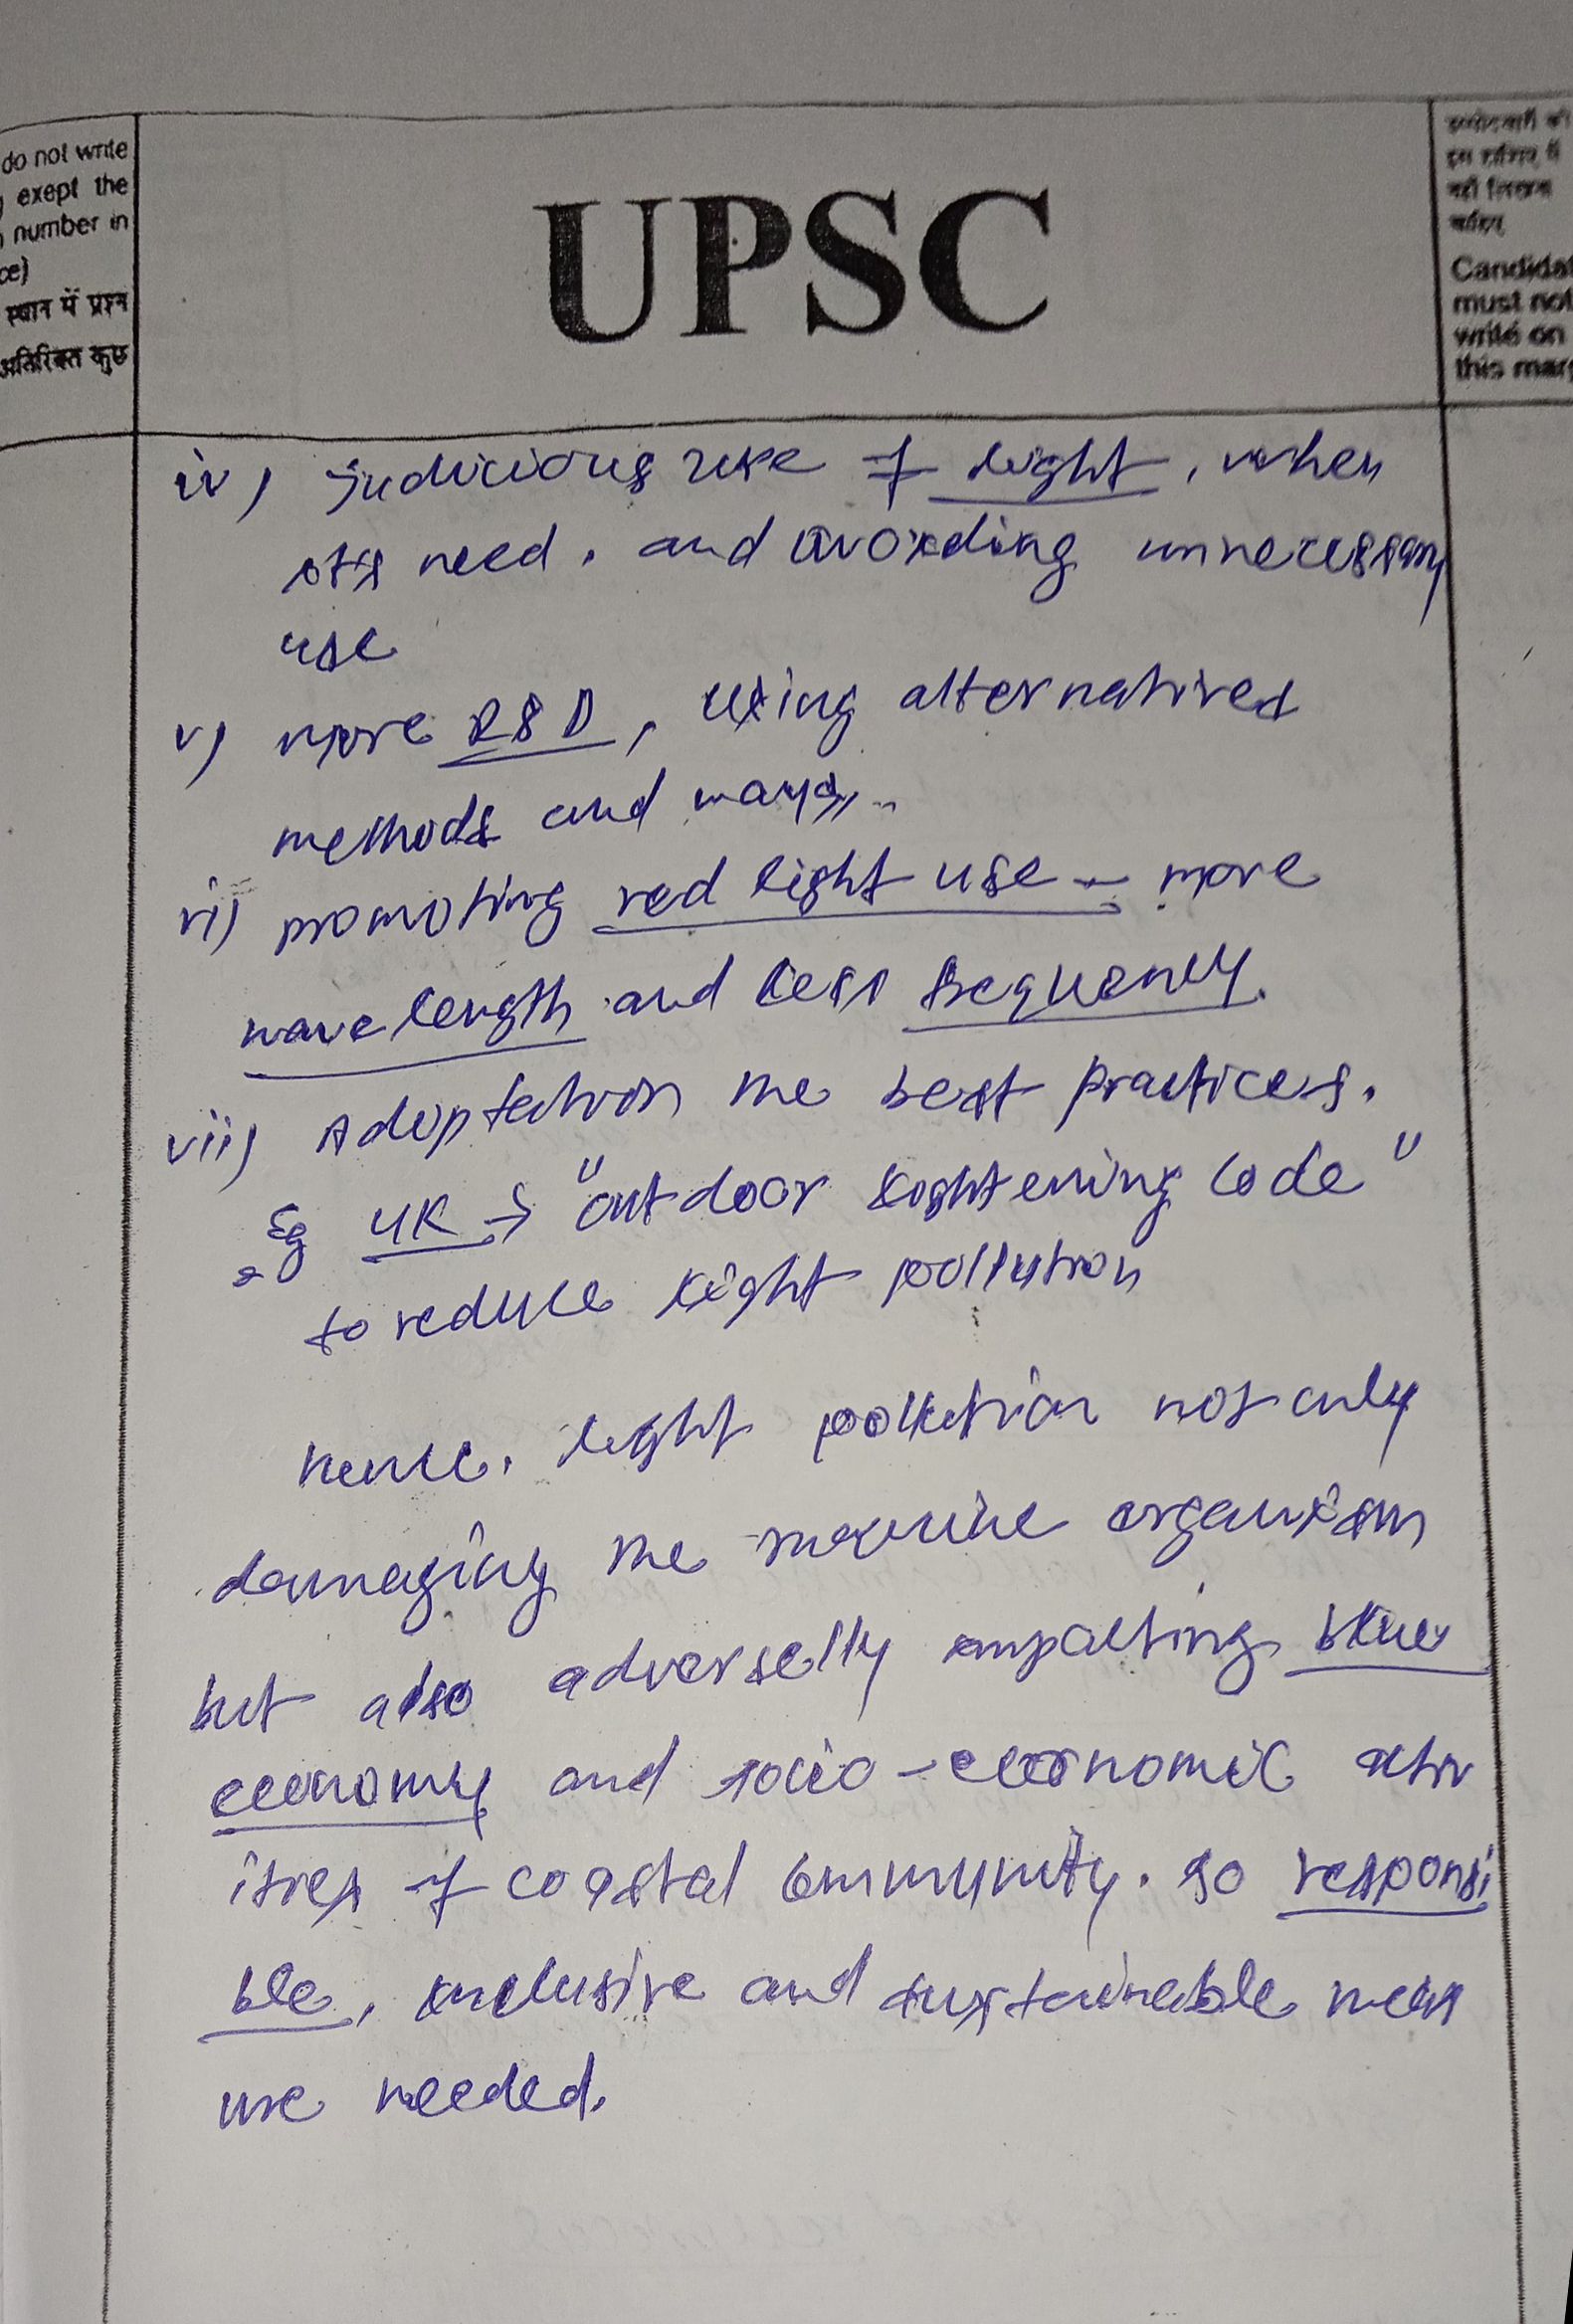 do not write
exept the
number in
ce)
स्थान में प्रश्न
अतिरिक्त कुछ
UPSC
Candidat
must not
write on
this marg
iv) Judicious use of light, when
its need, and avoiding unnecessary
use
v) more R&D, using alternatives
methods and ways
vi) promoting red light use - more
wave length and less frequency.
vii) Adoptation the best practices.
Eg UK → "outdoor lightening code"
to reduce light pollution
Hence, light pollution not only
damaging the marine organism
but also adverselly impacting blue
economy and socio-economic activ
ities of coastal community. so responsi
ble, inclusive and sustainable meas
ure needed.